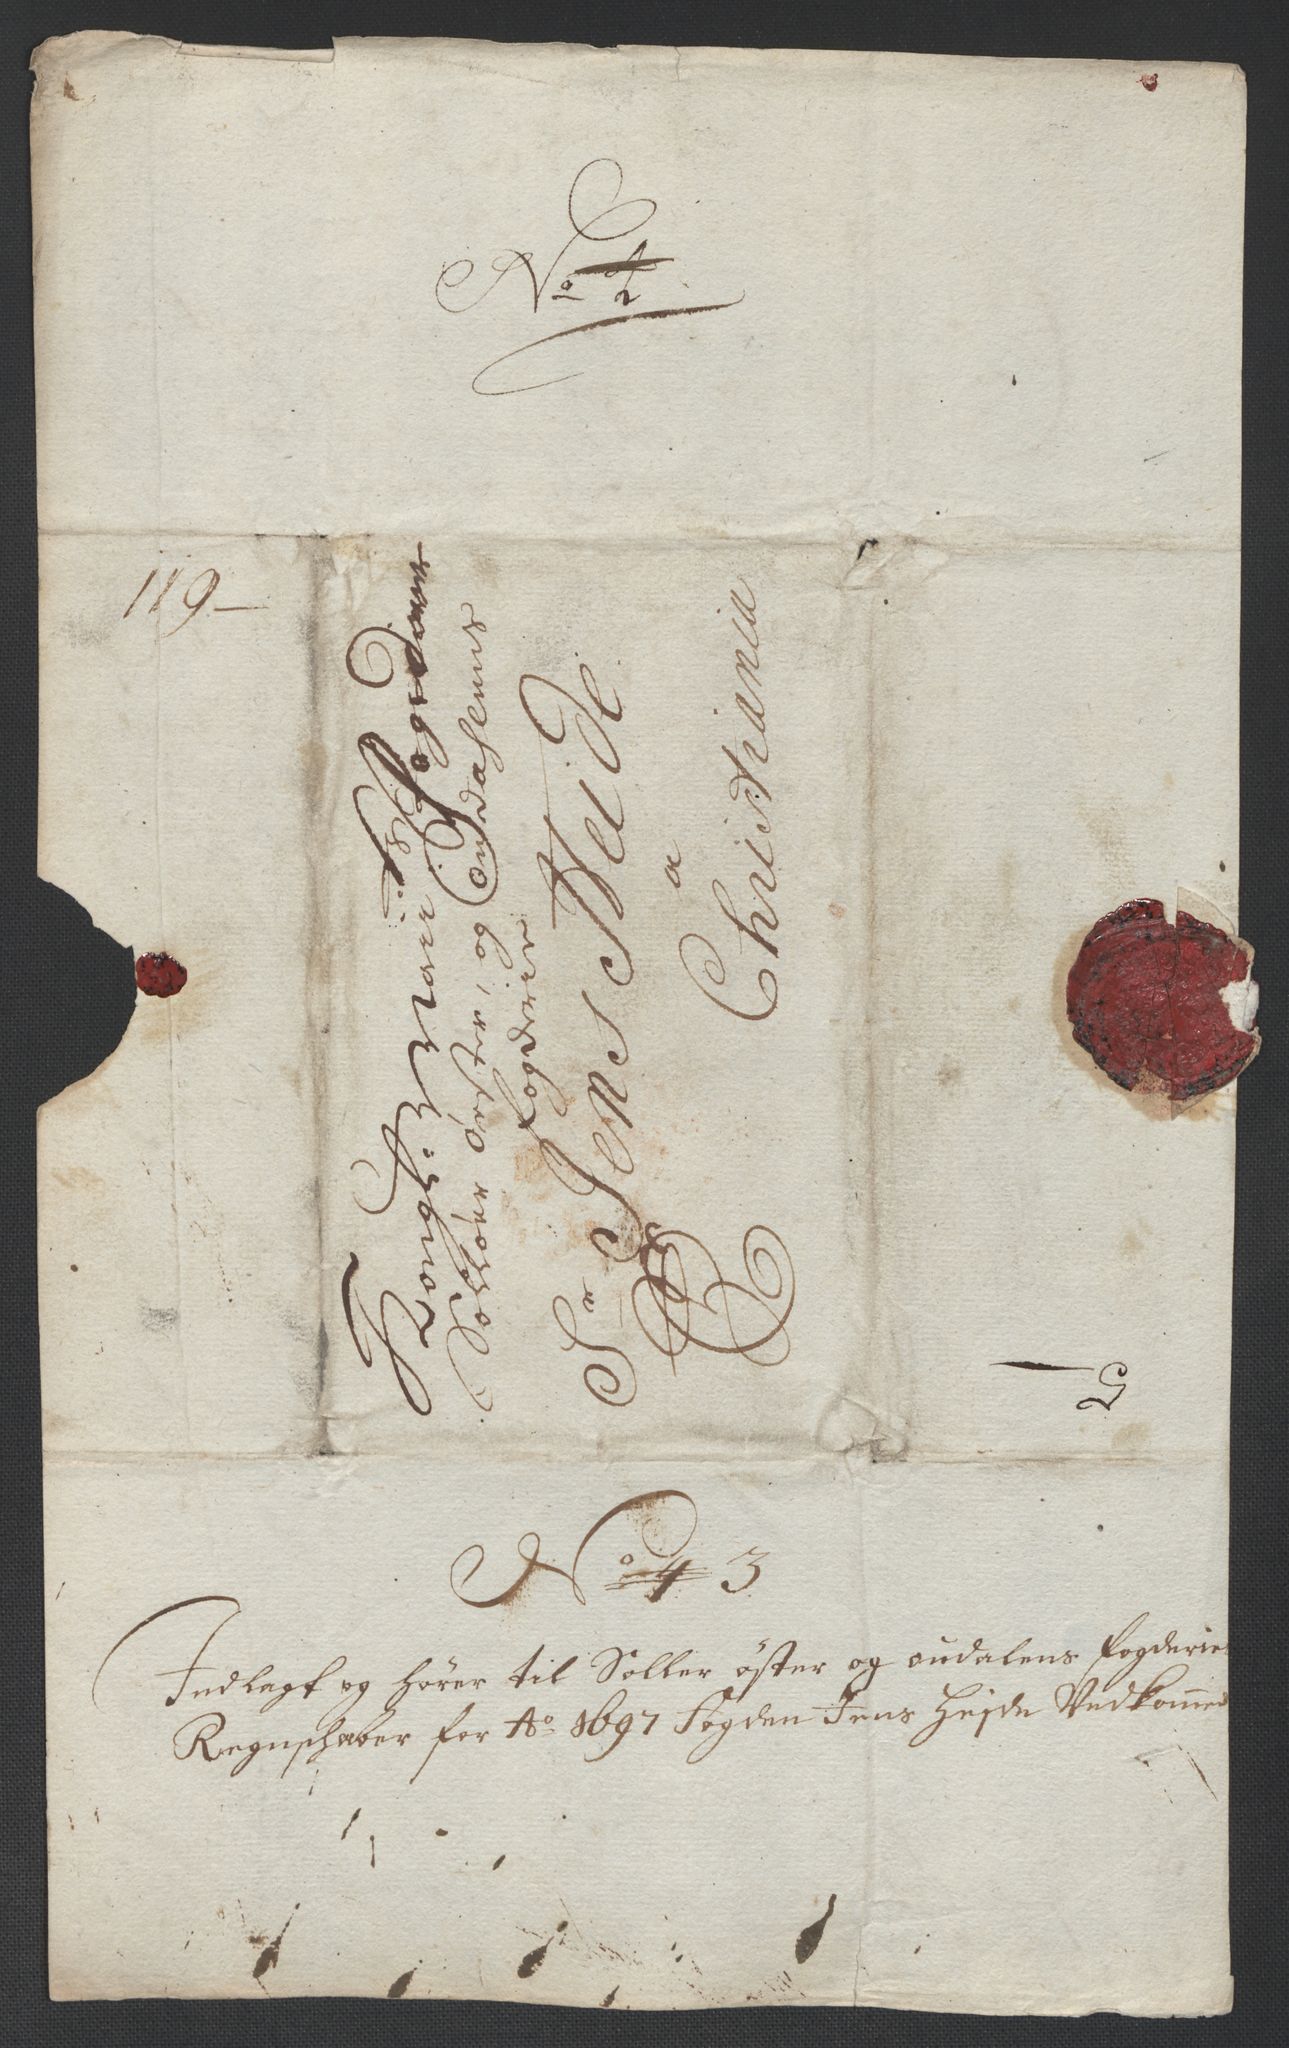 No 4
2
119—
Kongl: Mayts Fogd over
Soløer, Øster, og Oudalens
fogderie
Sr Jens Heide
a
Christiania
5
No 4 3
Indlagt og hører til Soller øster og oudalens fogderies
Regnschaber for Ao 1697 Fogden Jens Hejde Vedkommed